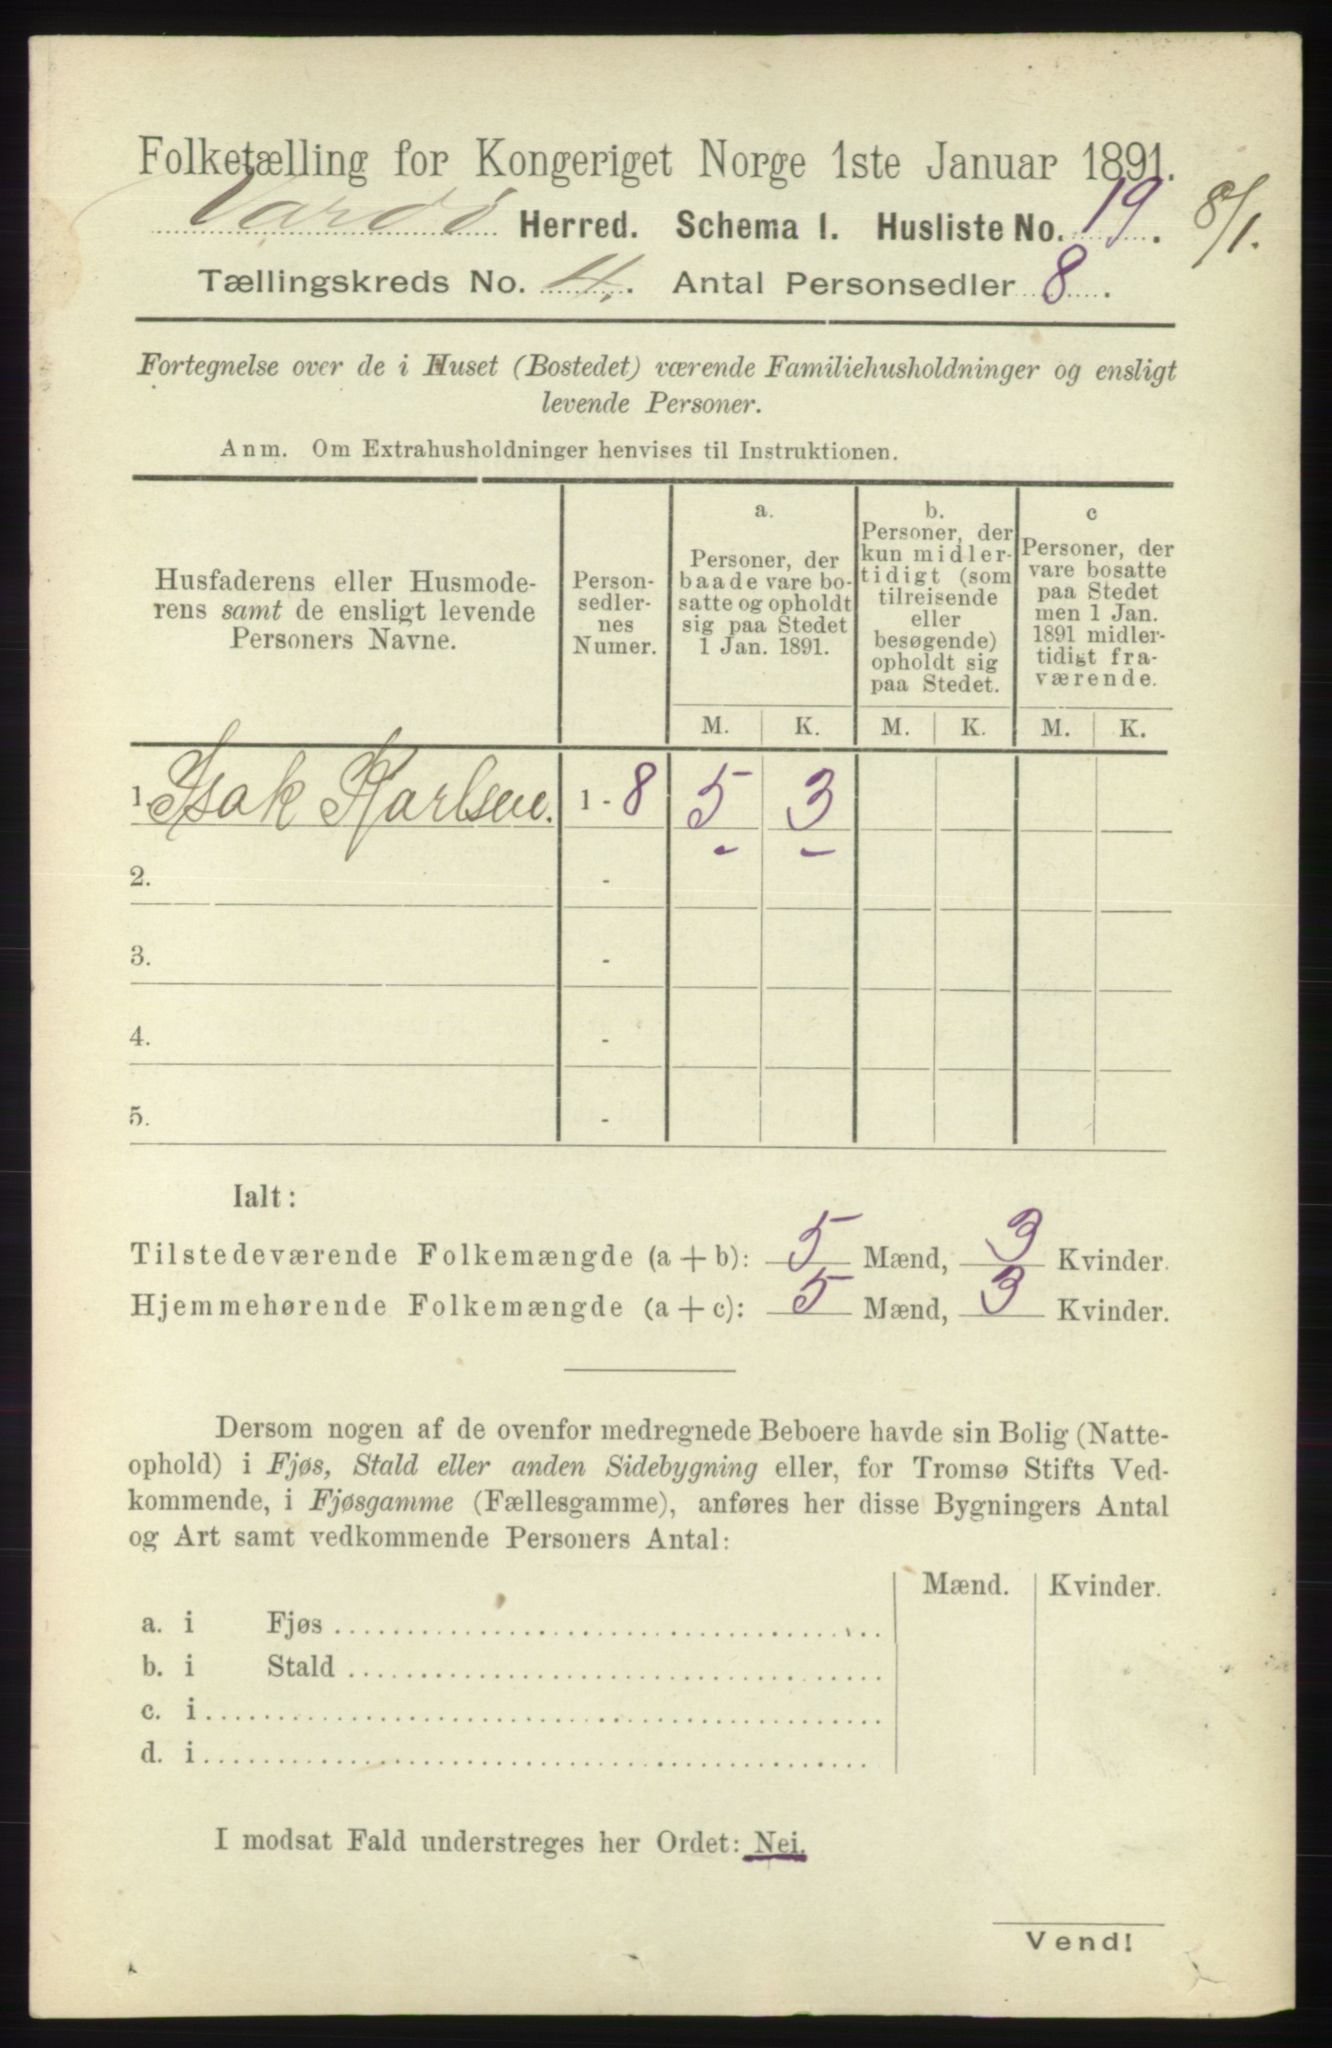 Folketælling for Kongeriget Norge 1ste Januar 1891.
Vardø Herred. Schema I. Husliste No. 19. 8/1.
Tællingskreds No. 4. Antal Personsedler 8.
Fortegnelse over de i Huset (Bostedet) værende Familiehusholdninger og ensligt
levende Personer.
Anm. Om Extrahusholdninger henvises til Instruktionen.
Husfaderens eller Husmode-
rens samt de ensligt levende
Personers Navne.
Person-
sedler-
nes
Numer.
a.
Personer, der
baade vare bo-
satte og opholdt
sig paa Stedet
1 Jan. 1891.
b.
Personer, der
kun midler-
tidigt (som
tilreisende
eller
besøgende)
opholdt sig
paa Stedet.
c
Personer, der
vare bosatte
paa Stedet
men 1 Jan.
1891 midler-
tidigt fra-
værende.
M. K. M. K. M. K.
1. Isak Karlsen. 1 - 8 5 3
2. -
3. -
4. -
5. -
Ialt:
Tilstedeværende Folkemængde (a + b): 5 Mænd, 3 Kvinder.
Hjemmehørende Folkemængde (a + c): 5 Mænd, 3 Kvinder.
Dersom nogen af de ovenfor medregnede Beboere havde sin Bolig (Natte-
ophold) i Fjøs, Stald eller anden Sidebygning eller, for Tromsø Stifts Ved-
kommende, i Fjøsgamme (Fællesgamme), anføres her disse Bygningers Antal
og Art samt vedkommende Personers Antal:
Mænd. Kvinder.
a. i Fjøs
b. i Stald
c. i
d. i
I modsat Fald understreges her Ordet: Nei.
Vend!